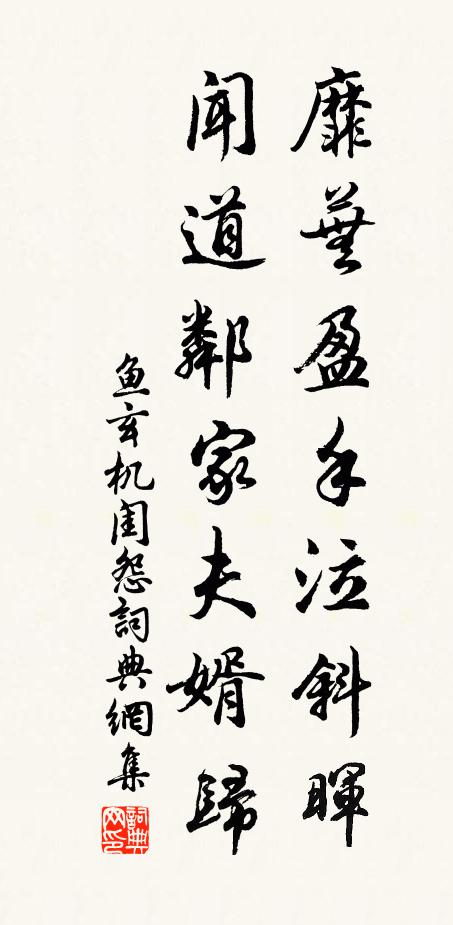 靡蕪盈手泣斜暉
闻道鄰家夫婿歸
鱼玄机闺怨詞典網集
詞典网印